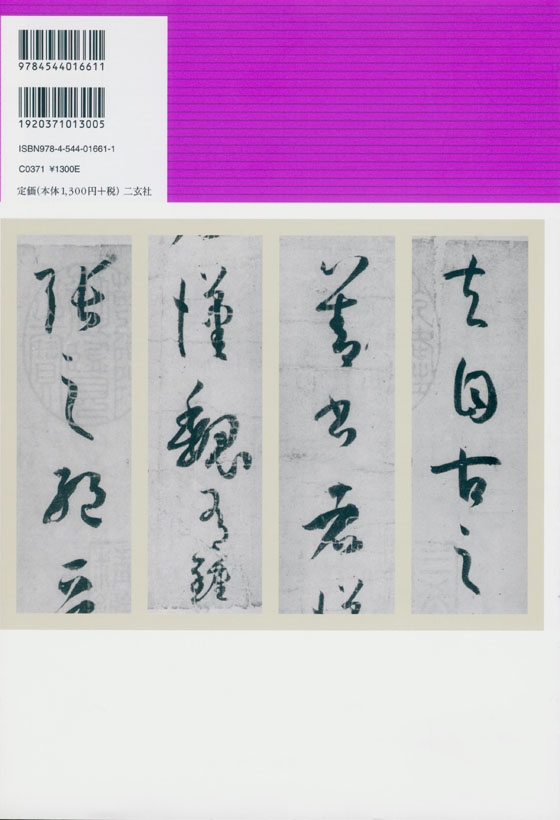 9784544016611
1920371013005
ISBN978-4-544-01661-1
C0371 ¥1300E
定価(本体1,300円+税) 二玄社
夫自古之
善書者
漢魏有鍾
張之絶